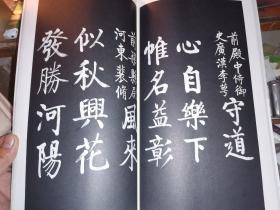 前殿中侍御
史廣漢李萼
守道
心自樂下
帷名益彰
河東裴脩
風來
似秋興花
發勝河陽